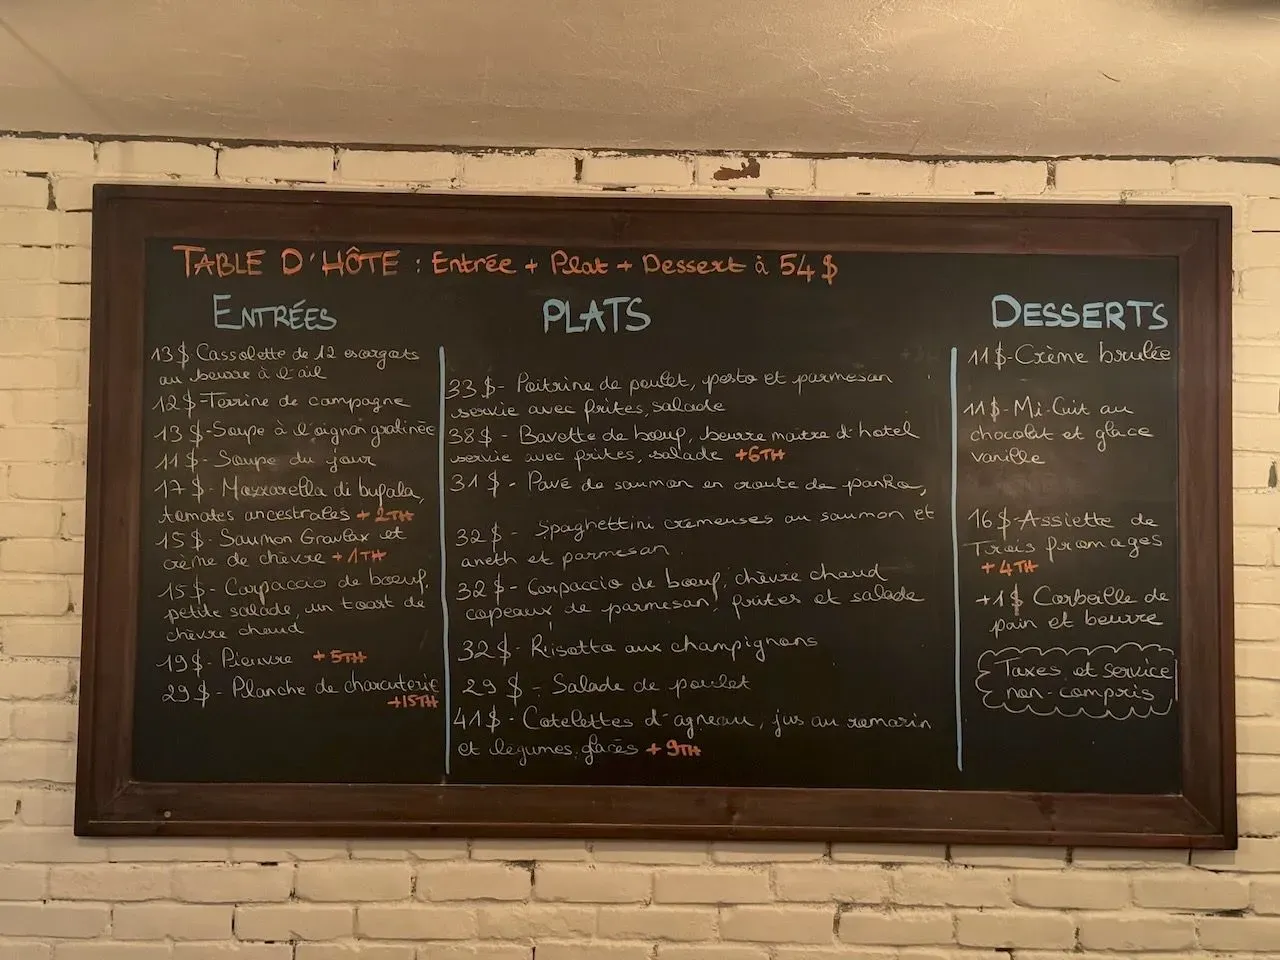 TABLE D'HÔTE : Entrée + Plat + Dessert à 54 $
ENTRÉES
13 $ Cassolette de 12 escargots
au beurre à l'ail
12 $ - Terrine de campagne
13 $ - Soupe à l'oignon gratinée
11 $ - Soupe du jour
17 $ - Mozzarella di bufala,
tomates ancestrales + 2TH
15 $ - Saumon Gravlax et
crème de chèvre + 1TH
15 $ - Carpaccio de boeuf,
petite salade, un toast de
chèvre chaud
19 $ - Pieuvre + 5TH
29 $ - Planche de charcuterie
+15TH
PLATS
33 $ - Poitrine de poulet, pesto et parmesan
servie avec frites, salade
38 $ - Bavette de boeuf, beurre maitre d'hotel
servie avec frites, salade +6TH
31 $ - Pavé de saumon en croute de panko,
32 $ - Spaghettini crémeuses au saumon et
aneth et parmesan.
32 $ - Carpaccio de boeuf, chèvre chaud
copeaux de parmesan, frites et salade
32 $ - Risotto aux champignons
29 $ - Salade de poulet
41 $ - Cotelettes d'agneau, jus au romarin
et légumes glacés + 9TH
DESSERTS
11 $ - Crème brulée
11 $ - Mi-Cuit au
chocolat et glace
vanille
16 $ - Assiette de
Trois fromages
+ 4TH
+1 $ Corbeille de
pain et beurre
Taxes et service
non-compris